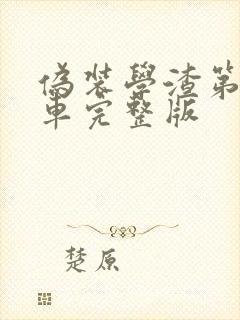 偽裝學渣第
車完整版
楚原